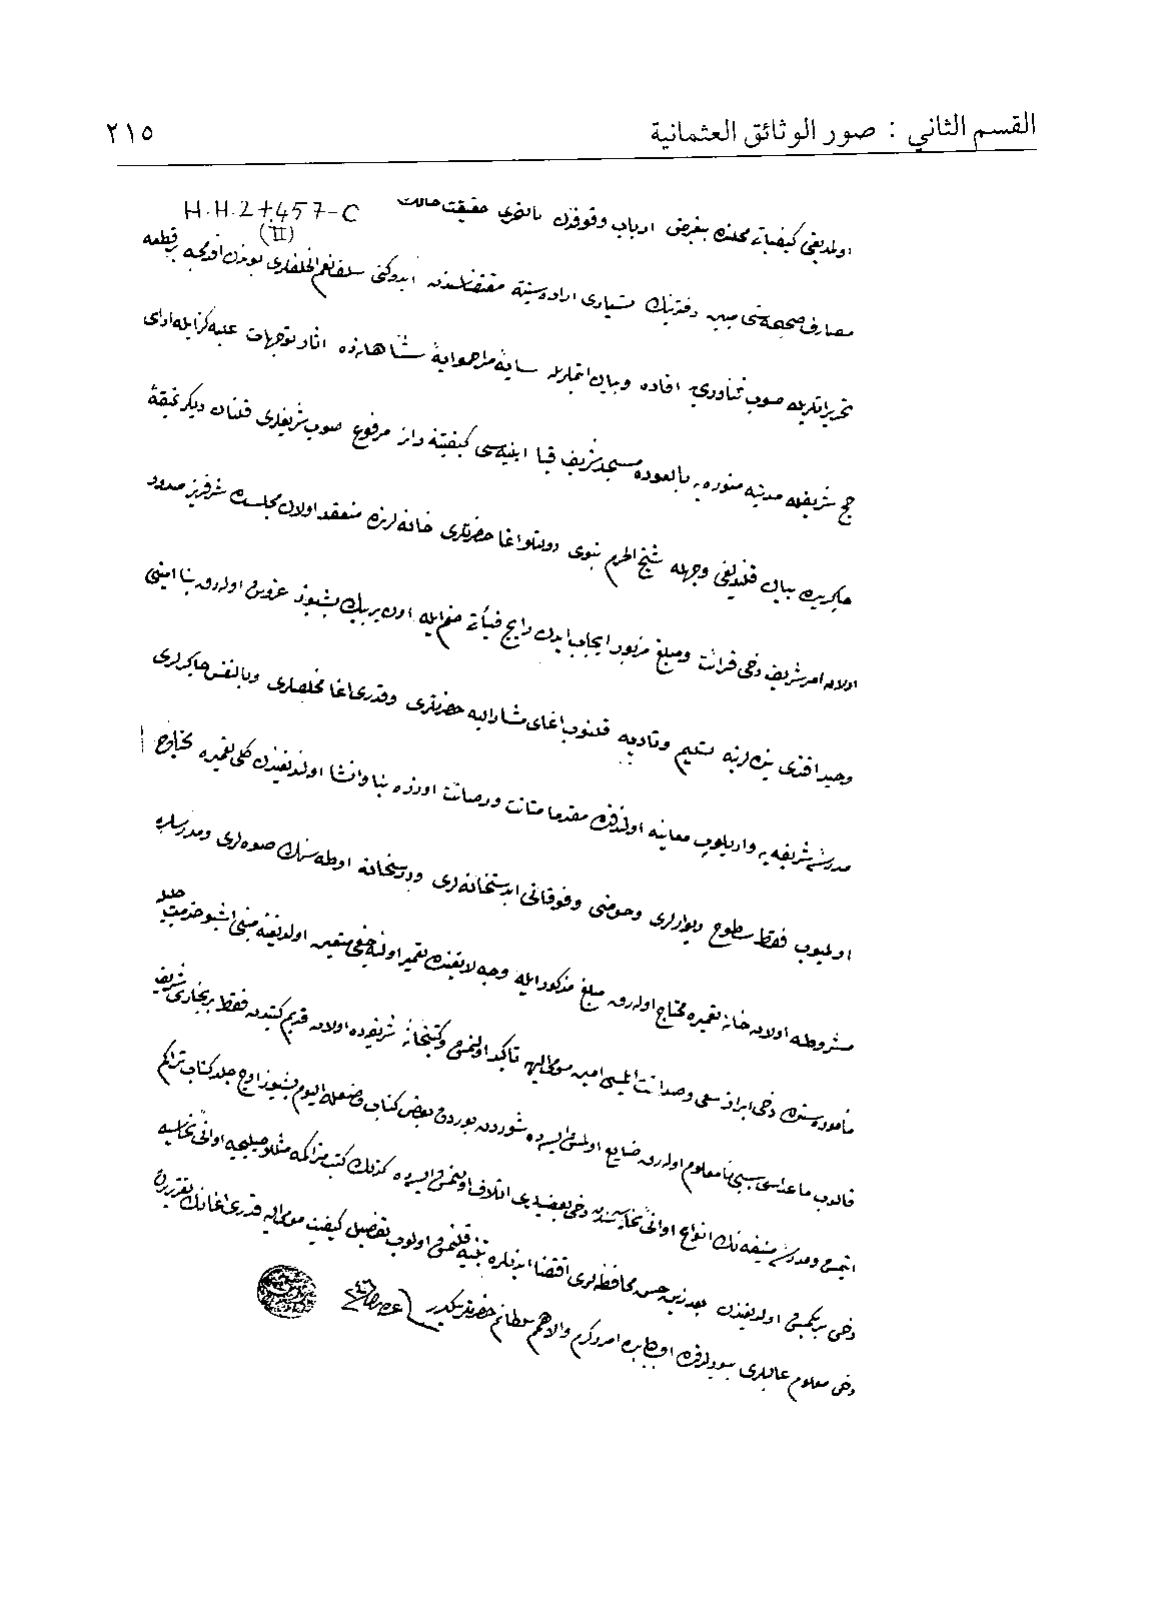 القسم الثاني : صور الوثائق العثمانية ٢١٥
H.H.2 +.457-C
(II)
اولديغى كيفياته محلنده بيغرض ارباب وقوفدن بالتحرى حقيقت حالت
مصارف صحيحه سنى مبين دفترينك تسيارى اراده سنيه مقتضاسندن ايدوكنى سلف نعم الخلفلرى بوندن اقدمجه بر قطعه
تحريراتلريله صوب ثناورى يه افاده وبيان ايتمليله سايۀ مراحموايۀ شاهانه ده اثار توجهات عليه كزايله اداى
حج شريفله مدينه منوره يه بالعوده مسجد شريف قبا ابنيه سى كيفيتنه دائر مرفوع صوب شريفلرى قلنان ديكر نميقۀ
چاكريده بيان قلنديغى وجهله شيخ الحرم نبوى دولتلو اغا حضرتلرى خانه لرنده منعقد اولان مجلسده شرفريز صدور
اولان امر شريف دخى قرائت ومبلغ مزبور ايجاب ايدن رايج فيأته ضم ايله اون بر بيك بشيوز غروش اوله رق بنا امينى
وحيد افندى بنده لرينه تسليم وتاديه قلنوب اغاى مشار اليه حضرتلرى وقدرى اغا مخلصلرى وبالنفس چاكرلرى
مدرسۀ شريفه يه واريلوب معاينه اولندقده مقدما متانت ورصانت اوزره بنا وانشا اولنديغندن كلى تعميره محتاج
اولميوب فقط سطوح ديوارلرى وحوضى وفوقانى ابدستخانه لرى ودرسخانه اوطه سنك صوه لرى ومدرسه يه
مشروطه اولان خانه تعميره محتاج اوله رق مبلغ مذكور ايله وجه لايقنده تعمير اولنه جغى متعين اولديغنه مبنى اشبو خدمت جليله
مأموره سنده دخى ابراز سعى وصداقت ايلمسى امين مومى اليه تاكيد اولنمش وكتبخانۀ شريفه ده اولان قديم كتبدن فقط بر بخارى شريف
قالوب ماعداسى سببى نامعلوم اوله رق ضايع اولمش ايسه ده شوردن بوردن بعض كتاب وضعيله اليوم بشيوز اوچ جلد كتاب تراكم
ايتمش ومدرسۀ منيفه نك انواع اوانئ نحاسيه سندن دخى بعضيلرى اتلاف اولنمش ايسه ده كذلك كتب متراكمه مثللو صيليجه اوانئ نحاسيه
دخى بريكمش اولديغندن بعد زين حسن محافظه لرى اقتضا ايدنلره تنبيه قلنمش اولوب تفصيل كيفيت مومى اليه قدرى اغانك تقريرندن
دخى معلوم عاليلرى بيورلدقده اولبابده امر وكرم والاهمم سلطانم حضرتلرينكدر